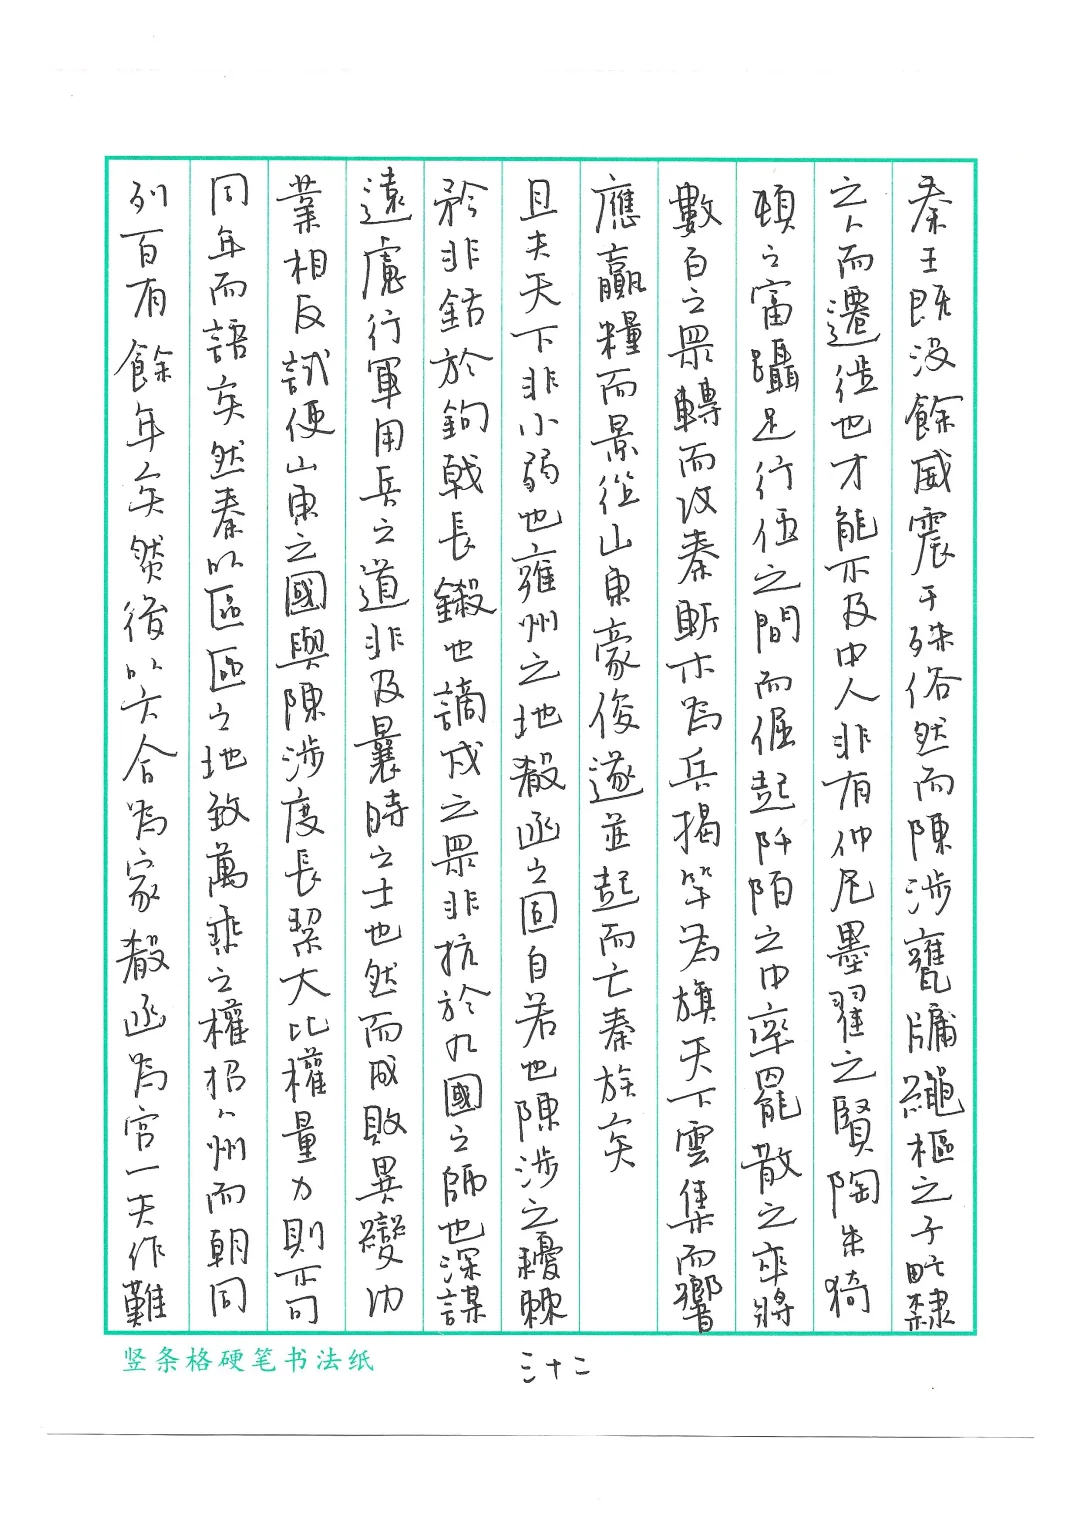 秦王既没餘威震于殊俗然而陳涉甕牖繩樞之子甿隸
之人而遷徙也才能不及中人非有仲尼墨翟之賢陶朱猗
頓之富躡足行伍之間而倔起阡陌之中率罷散之卒將
數百之眾轉而攻秦斬木為兵揭竿為旗天下雲集而響
應贏糧而景從山東豪俊遂並起而亡秦族矣
且夫天下非小弱也雍州之地殽函之固自若也陳涉之耰棘
矜非銛於鉤戟長鎩也謫戍之眾非抗於九國之師也深謀
遠慮行軍用兵之道非及曩時之士也然而成敗異變功
業相反試使山東之國與陳涉度長絜大比權量力則不可
同年而語矣然秦以區區之地致萬乘之權招八州而朝同
列百有餘年矣然後以六合為家殽函為宮一夫作難
竖条格硬笔书法纸
三十二